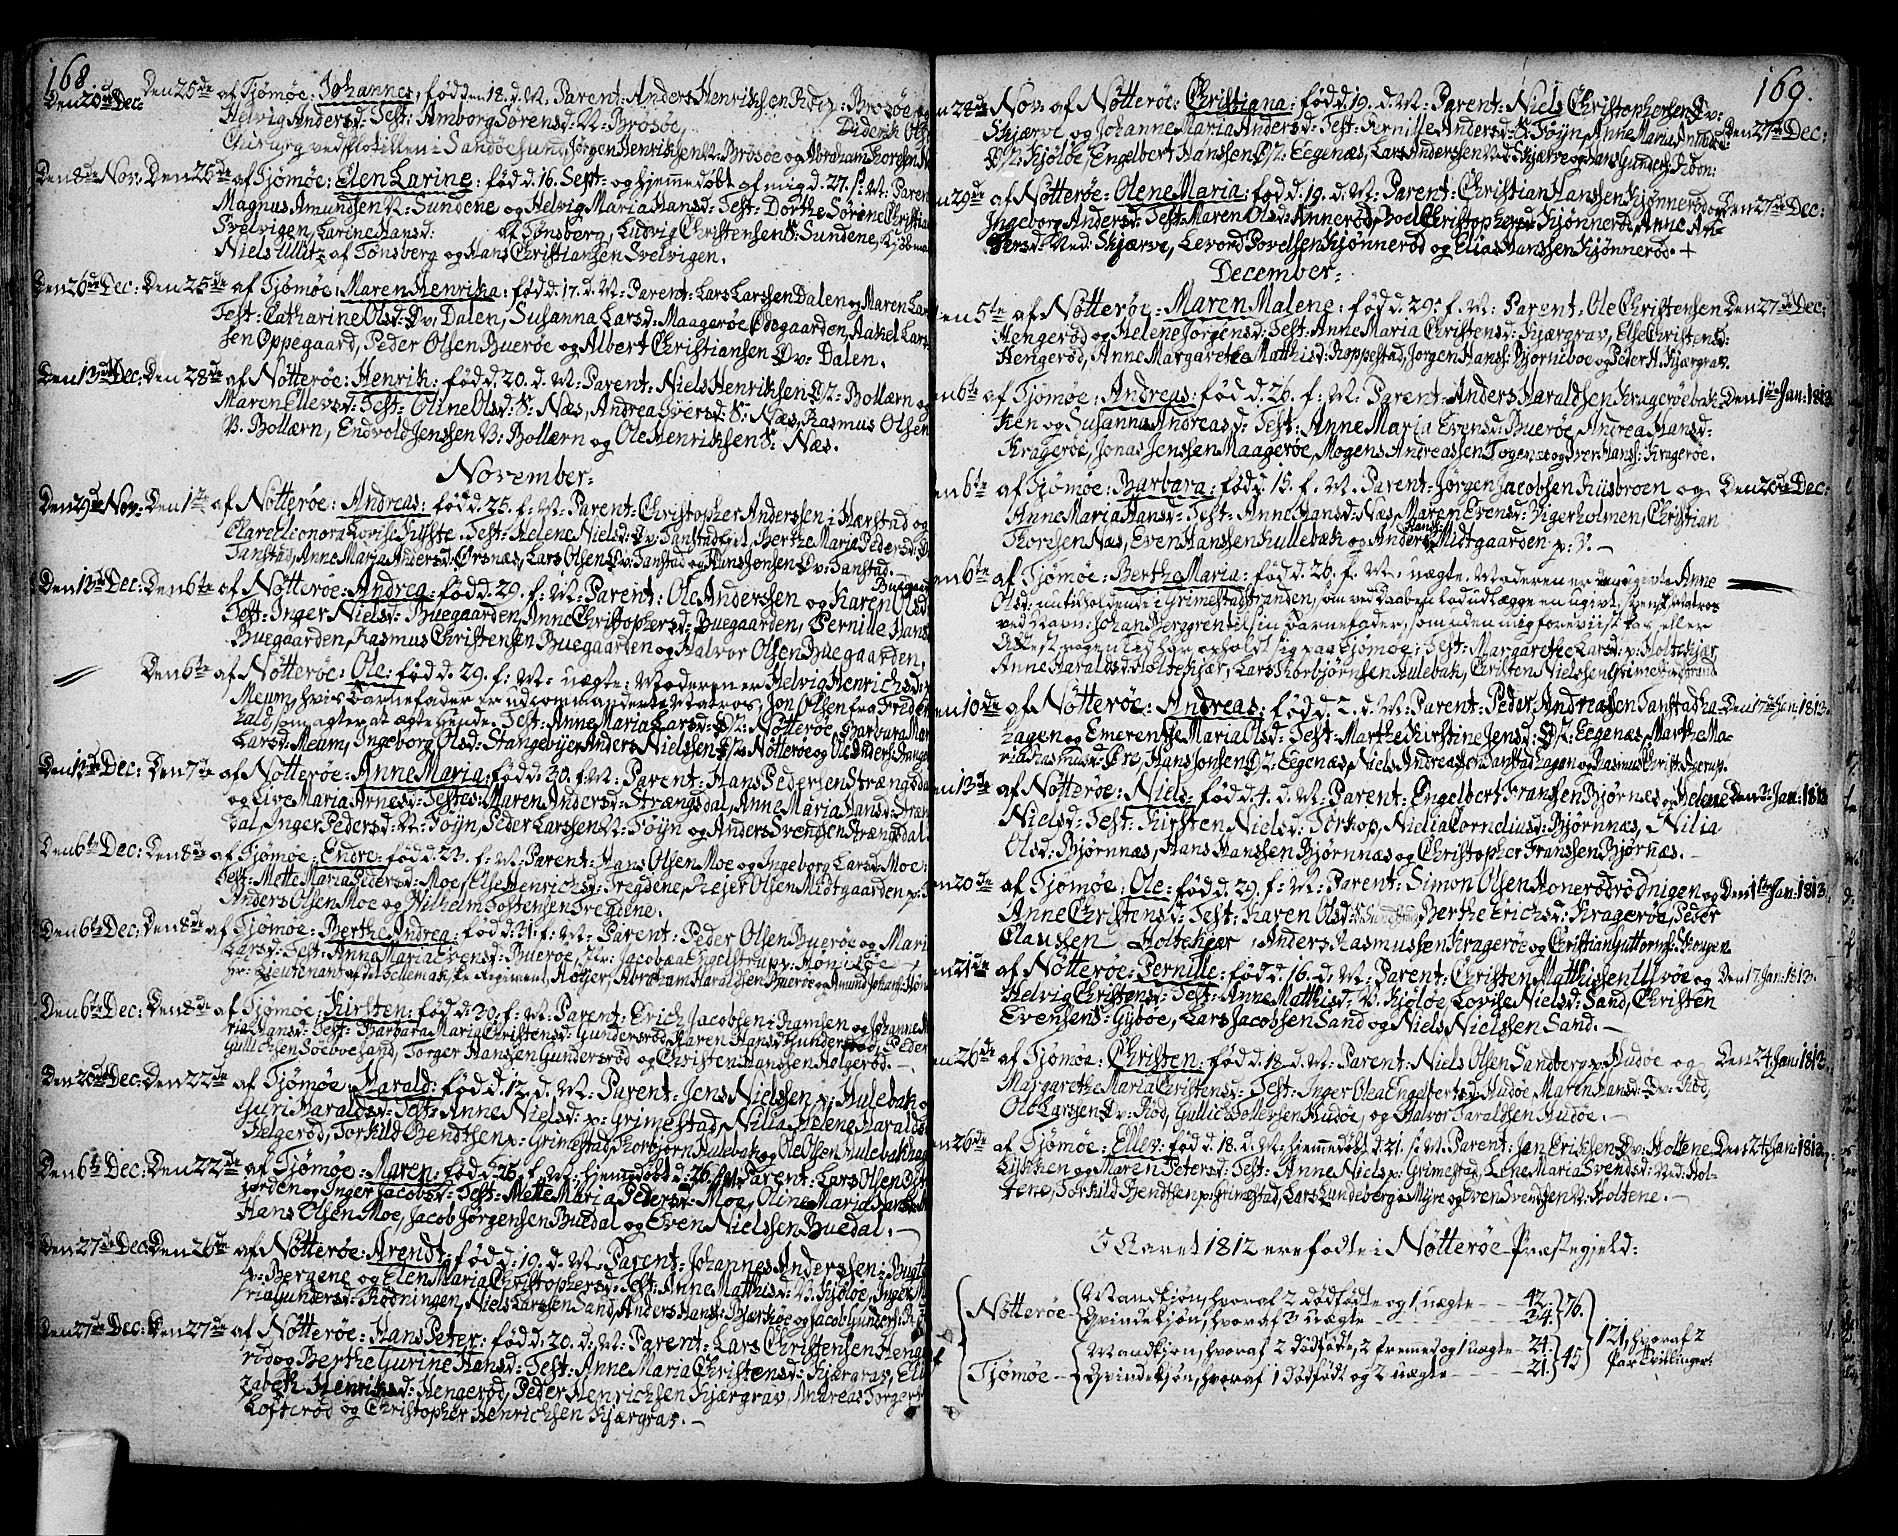 168.
Den 20de Dec: Den 25de af Tjømøe: Johannes, født den 18. d. M: Parent: Anders Henriksen
Helvig Andersd: Test: Amborg Sørensd: N: Brøsøe, Diderik Ols
Chirurg ved Flotillen i Sandøesund, Jørgen Henriksen N: Brøsøe og Abraham Thoresen
Den 8de Nov: Den 26de af Tjømøe: Elen Larine: fød d. 16. Sept: og hjemmedøbt af mig d. 27. s: M: Paren
Magnus Amundsen N: Sundene og Helvig Maria Hansd: Test: Dorthe Sørine Christian
Svelvigen, Larine Hansd: af Tønsberg, Ludvig Christensen S: Sundene, Kjøbm
Niels Ullitz af Tønsberg og Hans Christiansen Svelvigen.
Den 26de Dec: Den 25de af Tjømøe: Maren Henrika: fød d. 17. d. M: Parent: Lars Larssen Dalen og Maren Lar
Test: Catharine Olsd: Øv: Dalen, Susanna Larsd: Maagerøe Ødegaarden, Aaxel Lars
sen Oppegaard, Peder Olsen Buerøe og Albert Christiansen Øv: Dalen.
Den 13de Dec: Den 28de af Nøtterøe: Henrik: fød d. 20. d. M: Parent: Niels Henriksen Ø: Bollærn og
Maren Ellevsd: Test: Oline Olsd: S: Næs, Andrea Iversd: S: Næs, Rasmus Olsen
V. Bollærn, Endvold Jenssen V: Bollærn og Ole Henriksen S: Næs.
November:
Den 29de Nov: Den 1ste af Nøtterøe: Andreas: fød d. 25. f: M: Parent: Christopher Anderssen i Hærstad og
Clare Eleonora Lovise Test: Helene Nielsd: Øv: Tanstad, Berthe Maria Pedersd:
Tanstad, Anne Maria Andersd: Ørsnæs, Lars Olsen Øv: Tanstad og Hans Jonsen Øv: Tanstad.
Den 13de Dec: Den 6te af Nøtterøe: Andrea: fød d. 29. f: M: Parent: Ole Anderssen og Karen Olsd Buegaard
Test: Inger Nielsd: Buegaarden, Anne Christophersd: Buegaarden, Pernille Hans
Buegaarden, Rasmus Christensen Buegaarden og Halvor Olsen Buegaarden,
Den 6te af Nøtterøe: Ole: fød d. 29. f: M: uægte: Moderen er Helvig Henrichsd:
Meum, hvis Barnefader er udcommanderte Matros, Jon Olsen fra Friderich
hald, som agter at ægte hende. Test: Anne Maria Larsd: Ø: Nøtterøe, Barbara Mar
Larsd: Meum, Ingeborg Olsd: Stangebye, Anders Nielssen Ø: Nøtterøe og Ole Anders:
Den 13de Dec: Den 7de af Nøtterøe: Anne Maria: fød d. 30. f: M: Parent: Hans Pedersen Strængsda
og Live Maria Arnesd: Testes: Maren Andersd: Strængsdal, Anne Maria Hansd: Stræn
dal, Inger Pedersd: N: Tøyn, Peder Larssen N: Tøyn og Anders Svensen Strængsdal
Den 6te Dec: Den 8de af Tjømøe: Endre: fød d. 23. f: M: Parent: Hans Olsen Moe og Ingeborg Larsd: Moe:
Test: Mette Maria Pedersd: Moe, Else Henrichsd: Tregdene, Rejer Olsen Midtgaarden p:
Anders Olsen Moe og Wilhelm Tostensen Tregdene.
Den 6te Dec: Den 8de af Tjømøe: Berthe Andrea: fød d. 31. f: M: Parent: Peder Olsen Buerøe og Mari
Larsd: Test: Anna Maria Evensd: Buerøe, Jfr: Jacobæa Engelstrup v: Hønisløe
hr: Lieutenant af det Tellemarkske Regiment, Holger, Abraham Haraldsen Buerøe og Amund Johans: Høn
Den 6te Dec: Den 8de af Tjømøe: Kirsten: fød d. 30. f: M: Parent: Erich Jacobsen i Ramsen og Johanne
ria Hansd: Test: Barbara Maria Christensd: Gundersrød, Karen Hansd: Gundersrød, Peder
Gullichsen Søeboesand, Torger Hanssen Gundersrød og Christen Hanssen Holgerød. —
Den 20de Dec: Den 22de af Tjømøe: Harald: fød d. 12. d. M: Parent: Jens Nielssen v: Hulebak o
Guri Haraldsd: Test: Anne Nielsd: p: Grimestad, Nilla Helene Haralds
Helgerød, Torkild Bendtsen p: Grimestad, Thorbjørn Hulebak og Ole Olsen Hulebakhag
Den 6te Dec: Den 22de af Tjømøe: Maren: fød d. 25. f: M: hjemmedøbt d. 26. f: M: Parent: Lars Olsen
jorden og Inger Jacobsd: Test: Mette Maria Pedersd: Moe, Oline Maria Hans
Hans Olsen Moe, Jacob Jørgensen Buedal og Even Nielssen Buedal. —
Den 27de Dec: Den 26de af Nøtterøe: Arendt: fød d. 19. d. M: Parent: Johannes Anderssen i Bugt
v: Bergene og Elen Maria Christophersd: Test: Anne Matthisd: V: Kjøløe, Inger M
ria Gundersd: Rødningen, Niels Larssen Sand, Anders Hans: Bjerkøe og Jacob Gunders: Rø
Den 27de Dec: Den 27de af Nøtterøe: Hans Peter: fød d. 20. d: M: Parent: Lars Christensen Heng
rød og Berthe Gurine Hansd: Test: Anne Maria Christensd: Kjærgrav, Eli
zabeth Henriksd: Hengerød, Peder Henrichsen Kjærgrav, Andreas Torgers
Lofterød og Christopher Henrichsen Kjærgrav. —
169.
en 22de Nov: af Nøtterøe: Christiana: fød d. 19. d. M: Parent: Niels Christophersen Øv: Den 27de Dec:
Skjærve og Johanne Maria Andersd: Test: Pernille Andersd: S: Tøyn, Anne Maria
Ø: Kjøløe, Engelbert Hanssen Ø: Eegenæs, Lars Anderssen Ned: Skjærve og Hans Gunders: Rødn:
en 29de af Nøtterøe: Olene Maria: fød d. 19. d. M: Parent: Christian Hanssen Kjønnerød og Den 27de Dec:
Ingeborg Andersd: Test: Maren Olsd: Annerød, Boel Christophersd: Kjønnerød, Anne An-
dersd: Ned: Skjærve, Levord Povelsen Kjønnerød og Elias Hanssen Kjønnerød. +
December:
en 5te af Nøtterøe: Maren Malene: fød d. 29. f. M: Parent: Ole Christensen Den 27de Dec:
Hengerød og Helene Jørgensd: Test: Anne Maria Christensd: Kjærgrav, Else Christensd:
Hengerød, Anne Margarethe Matthisd: Roppestad, Jørgen Hans: Bjørneboe og Peder H: Kjærgrav.
en 6te af Tjømøe: Andreas: fød d. 26. f. M: Parent: Anders Haraldsen Kragerøebak- Den 1ste Jan: 1813.
ken og Susanna Andreasd: Test: Anne Maria Evensd: Buerøe, Andrea Hansd:
Kragerøe, Jonas Jenssen Maagerøe, Mogens Andreassen Togenes og Iver Hans: Kragerøe.
en 6te af Tjømøe: Barbara: fød d. 15. f. M: Parent: Jørgen Jacobsen Kiisbroen og Den 20de Dec:
Anne Maria Hansd: Test: Anne Hansd: Næs, Maren Evensd: Vigerholmen, Christian
Thoresen Næs, Even Hanssen Kullebæk og Anders Hans: Midtgaarden p: J. —
en 6te af Tjømøe: Berthe Maria: fød d. 26. f. M: uægte. Moderen er den ugivte Anne
Olsd: nu tilholdende i Grimestadstranden, som ved Daaben lod udlægge en ugivt, svensk Matros
ved Navn: Johan Berggren til sin Barnefader, som uden mig foreviist Pas eller
Attest nogen Tid har opholdt sig paa Tjømøe: Test: Margarethe Larsd: v: Holtekjær,
Anne Haraldsd: Holtekjær, Lars Thorbjørnsen Hulebak, Christen Nielssen Grimestadstrand
en 10de af Nøtterøe: Andreas: fød d. 2. d. M: Parent: Peder Andreasen Tanstadha- Den 17de Jan: 1813.
hagen og Emerentse Maria Olsd: Test: Marthe Kirstine Jensd: Ø: Eegenæs, Marthe Ma-
ria Rasmusd: Øre, Hans Jonsen Ø: Eegenæs, Niels Andreassen Tanstadhagen og Rasmus Christ:
en 13de af Nøtterøe: Niels: fød d. 4. d. M: Parent: Engelbert Franssen Bjørnes og Helene Den 2: Jan: 1813
Nielsd: Test: Kirsten Nielsd: Torkop, Nielia Corneliusd: Bjørnnæs, Nilia
Olsd: Bjørnnæs, Hans Hanssen Bjørnnæs og Christopher Franssen Bjørnæs. —
en 20de af Tjømøe: Ole: fød d. 29. f: M: Parent: Simon Olsen Honerødrødnigen og Den 1ste Jan: 1813.
Anne Christensd: Test: Karen Olsd: Berthe Erichsd: Kragerøe, Peder
Claussen Holtekjær, Anders Rasmussen Kragerøe og Christian Guttorms: Skougen
en 21de af Nøtterøe: Pernille: fød d. 16. d. M: Parent: Christen Matthissen Ulvøe og Den 17 Jan: 1813.
Helvig Christensd: Test: Anne Matthisd: V. Kjøløe, Lovise Nielsd: Sand, Christen
Evensen S: Gyboe, Lars Jacobsen Sand og Niels Nielssen Sand. —
en 26de af Tjømøe: Christen: fød d. 18. d. M: Parent: Niels Olsen Sandberg p: Hudøe og Den 24. Jan: 1813.
Margarethe Maria Christensd: Test: Inger Olea Engelbertsd: Hudøe, Maren Hansd: Øv: Rød,
Ole Larssen Øv: Rød, Gullic Sollevsen Hudøe, og Halvor Taraldsen Hudøe. —
en 26de af Tjømøe: Ellev: fød d. 18. d. M: hjemmedøbt d. 21. s: M: Parent: Jan Eriksen Øv: Holtene Den 24 Jan: 1813.
Lykken og Maren Petersd: Test: Anne Niels p: Grimestad, Lene Maria Svendsd: Ned: Hol-
tene, Torkild Bendtsen p: Grimestad, Lars Lundeberg a Myre og Sven Svendsen N: Holtene. —
I Aaret 1812 ere fødte i Nøtterøe Præstegjeld:
Nøtterøe { Mandkjøn, hvoraf 2 dødfødte og 1 uægte — 42. } 76.
Qvindekjøn, hvoraf 3 uægte — 34.
Tjømøe { Mandkjøn, hvoraf 2 dødfødte, 2 fremmed og 1 uægte — 24. } 45
Qvindekjøn, hvoraf 1 dødfødt og 2 uægte — 21.
121, hvoraf 2
Par Tvillinger: